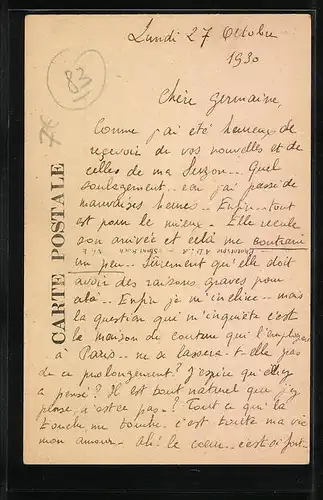 Lundi 27 Octobre
1930
83
7€
CARTE POSTALE
Chère Germaine,
Comme j'ai été heureuse de
recevoir de vos nouvelles et de
celles de ma Suzon.. Quel
soulagement.. car j'ai passé de
mauvaises heures.. Enfin.. tout
est pour le mieux. Elle recule
son arrivée et cela me contrarie
un peu.. Sûrement qu'elle doit
avoir des raisons graves pour
cela.. Enfin je m'incline.. mais
la question qui m'inquiète c'est
la maison de couture qui l'emploie
à Paris.. ne se lassera-t-elle pas
de ce prolongement? J'espère qu'elle y
a pensé? Il est tout naturel que j'y
pense, n'est ce pas? Tout ce qui la
touche, me touche.. c'est toute ma vie
mon amour.. Ah! le coeur.. c'est si fort..